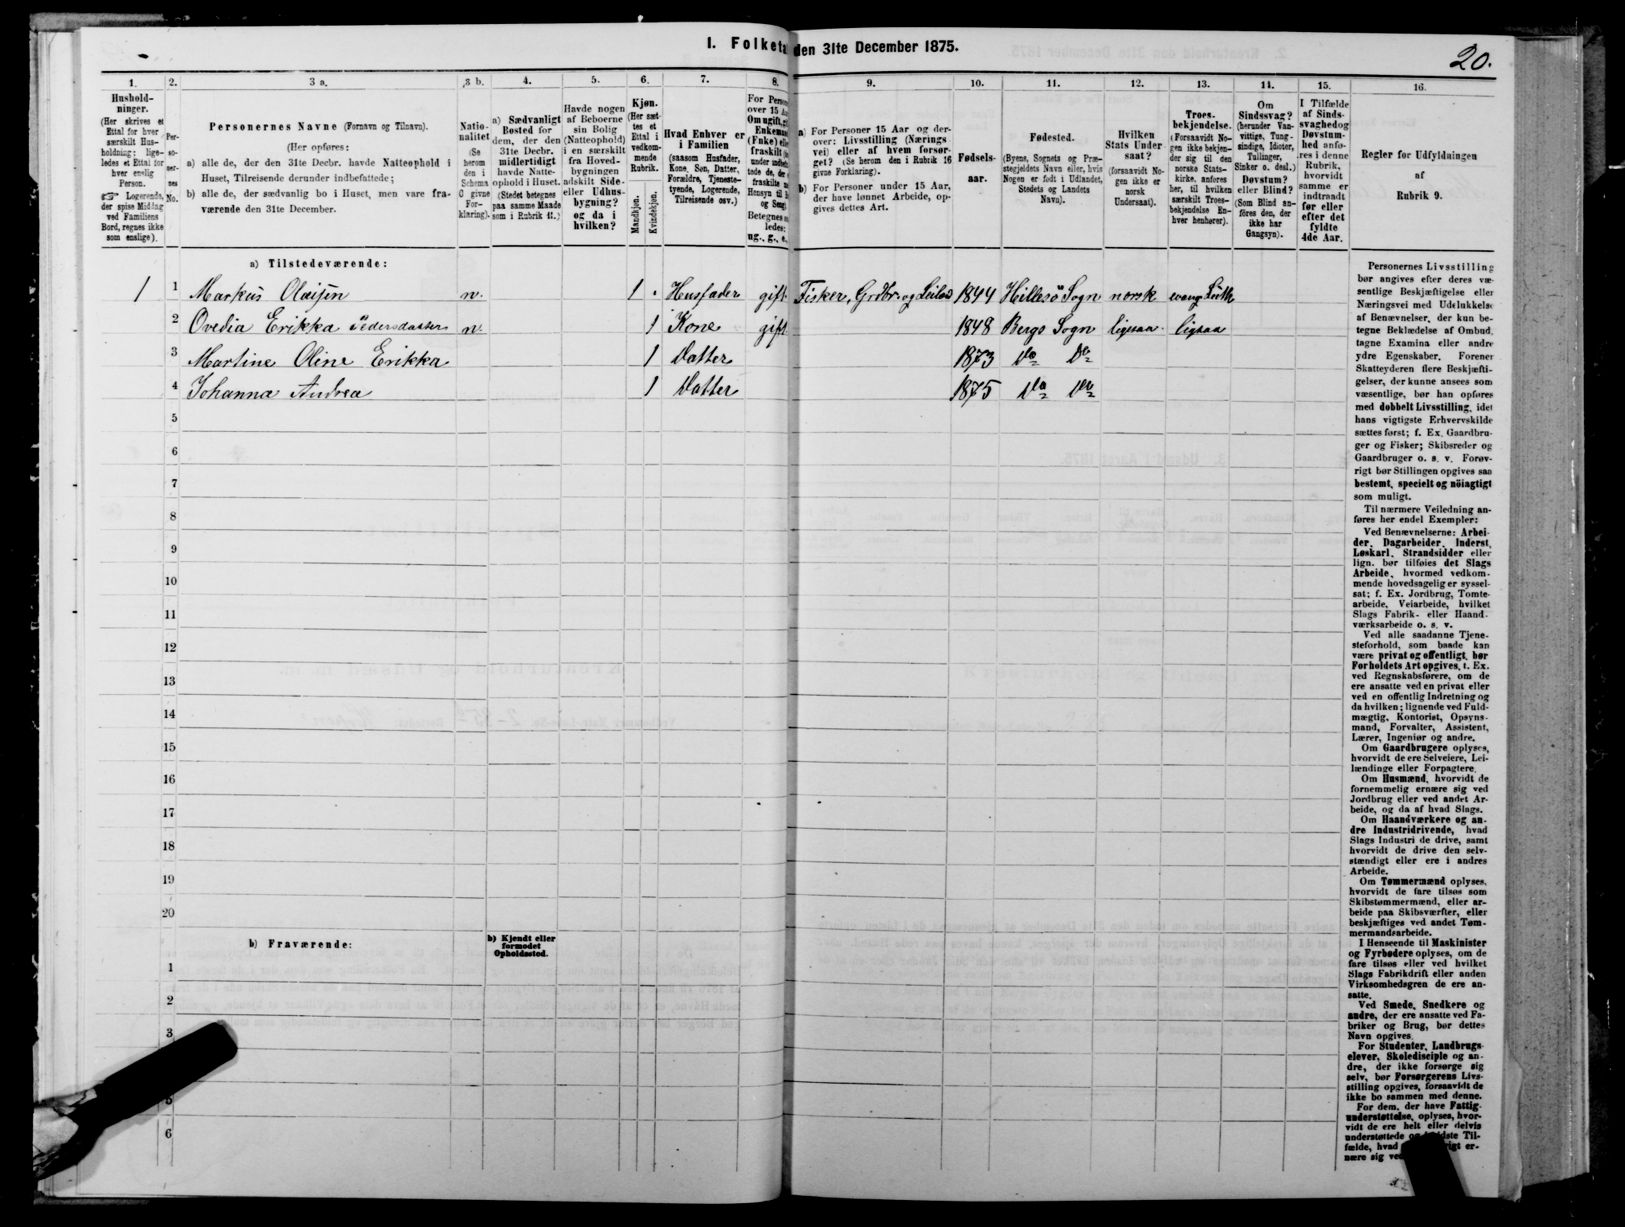 I. Folketæ
den 31te December 1875.
20.
1.
2.
3 a.
3 b.
4.
5.
6.
7.
8.
9.
10.
11.
12.
13.
14.
15.
16.
Hushold-
ninger.
(Her skrives et
Ettal for hver
særskilt Hus-
holdning: lige-
ledes et Ettal for
hver enslig
Person.
Logerende,
der spise Middag
ved Familiens
Bord, regnes ikke
som enslige).
Per-
so-
ner-
nes
No.
Personernes Navne (Fornavn og Tilnavn).
(Her opføres:
a) alle de, der den 31te Decbr. havde Natteophold i
Huset, Tilreisende derunder indbefattede;
b) alle de, der sædvanlig bo i Huset, men vare fra-
værende den 31te December.
Natio-
nalitet
(Se
herom
den i
Schema
0 givne
For-
klaring).
a) Sædvanligt
Bosted for
dem, der den
31te Decbr.
midlertidigt
havde Natte-
ophold i Huset.
(Stedet betegnes
paa samme Maade
som i Rubrik 11.)
Havde nogen
af Beboerne
sin Bolig
(Natteophold)
i en særskilt
fra Hoved-
bygningen
adskilt Side-
eller Udhus-
bygning?
og da i
hvilken?
Kjøn.
(Her sæt-
tes et
Ettal i
vedkom-
mende
Rubrik.
Mandkjøn.
Kvindekjøn.
Hvad Enhver er
i Familien
(saasom Husfader,
Kone, Søn, Datter,
Forældre, Tjeneste-
tyende, Logerende,
Tilreisende osv.)
For Person
over 15 Aa
Om ugift, g
Enkeman
(Enke) elle
fraskilt
Betegnes
ledes:
ug., g., e.,
a) For Personer 15 Aar og der-
over: Livsstilling (Nærings-
vei) eller af hvem forsør-
get? (Se herom den i Rubrik 16
givne Forklaring).
b) For Personer under 15 Aar,
der have lønnet Arbeide, op-
gives dettes Art.
Fødsels-
aar.
Fødested.
(Byens, Sognets og Præ-
stegjeldets Navn eller, hvis
Nogen er født i Udlandet,
Stedets og Landets
Navn).
Hvilken
Stats Under-
saat?
(forsaavidt No-
gen ikke er
norsk
Undersaat).
Troes-
bekjendelse.
(Forsaavidt No-
gen ikke bekjen-
der sig til den
norske Stats-
kirke, anføres
her, til hvilken
særskilt Troes-
bekjendelse En-
hver henhører).
Om
Sindssvag?
(herunder Van-
vittige, Tung-
sindige, Idioter,
Tullinger,
Sinker o. desl.)
Døvstum?
eller Blind?
(Som Blind an-
føres den, der
ikke har
Gangsyn).
I Tilfælde
af Sinds-
svaghed og
Døvstum-
hed anfø-
res i denne
Rubrik,
hvorvidt
samme er
indtraadt
før eller
efter det
fyldte
4de Aar.
Regler for Udfyldningen
af
Rubrik 9.
a) Tilstedeværende:
1 1 Markus Olaisen n. 1 Husfader gift Fisker, Grdbr. og Leilæ 1844 Hillesö Sogn norsk evang. Luth
2 Ovedia Erikka Pedersdatter n. 1 Kone gift 1848 Bergs Sogn ligsaa ligsaa
3 Martine Oline Erikka 1 Datter 1873 Do Do
4 Johanna Andrea 1 Datter 1875 Do Do
5
6
7
8
9
10
11
12
13
14
15
16
17
18
19
20
b) Fraværende:
b) Kjendt eller
formodet
Opholdssted.
1
2
3
5
6
Personernes Livsstilling
bør angives efter deres væ-
sentlige Beskjæftigelse eller
Næringsvei med Udelukkelse
af Benævnelser, der kun be-
tegne Beklædelse af Ombud,
tagne Examina eller andre
ydre Egenskaber. Forener
Skatteyderen flere Beskjæfti-
gelser, der kunne ansees som
væsentlige, bør han opføres
med dobbelt Livsstilling, idet
hans vigtigste Erhvervskilde
sættes først; f. Ex. Gaardbru-
ger og Fisker; Skibsreder og
Gaardbruger o. s. v. Forøv-
rigt bør Stillingen opgives saa
bestemt, specielt og nöiagtigt
som muligt.
Til nærmere Veiledning an-
føres her endel Exempler:
Ved Benævnelserne: Arbei-
der, Dagarbeider, Inderst,
Løskarl, Strandsidder eller
lign. bør tilføies det Slags
Arbeide, hvormed vedkom-
mende hovedsagelig er syssel-
sat; f. Ex. Jordbrug, Tomte-
arbeide, Veiarbeide, hvilket
Slags Fabrik- eller Haand-
værksarbeide o. s. v.
Ved alle saadanne Tjene-
steforhold, som baade kan
være privat og offentligt, bør
Forholdets Art opgives, t. Ex.
ved Regnskabsførere, om de
ere ansatte ved en privat eller
ved en offentlig Indretning og
da hvilken; lignende ved Fuld-
mægtig, Kontorist, Opsyns-
mand, Forvalter, Assistent,
Lærer, Ingeniør og andre.
Om Gaardbrugere oplyses,
hvorvidt de ere Selveiere, Lei-
lændinge eller Forpagtere.
Om Husmænd, hvorvidt de
fornemmelig ernære sig ved
Jordbrug eller ved andet Ar-
beide, og da af hvad Slags.
Om Haandværkere og an-
dre Industridrivende, hvad
Slags Industri de drive, samt
hvorvidt de drive den selv-
stændigt eller ere i andres
Arbeide.
Om Tømmermænd oplyses,
hvorvidt de fare tilsøs som
Skibstømmermænd, eller ar-
beide paa Skibsværfter, eller
beskjæftiges ved andet Tøm-
mermandsarbeide.
I Henseende til Maskinister
og Fyrbødere oplyses, om de
fare tilsøs eller ved hvilket
Slags Fabrikdrift eller anden
Virksomhedsgren de ere an-
satte.
Ved Smede, Snedkere og
andre, der ere ansatte ved Fa-
briker og Brug, bør dettes
Navn opgives.
For Studenter, Landbrugs-
elever, Skoledisciple og an-
dre, der ikke forsørge sig
selv, bør Forsørgerens Livs-
stilling opgives, forsaavidt de
ikke bo sammen med denne.
For dem, der have Fattig-
understøttelse, oplyses, hvor-
vidt de ere helt eller delvis
understøttede og i sidste Til-
fælde, hvad
nære sig ved